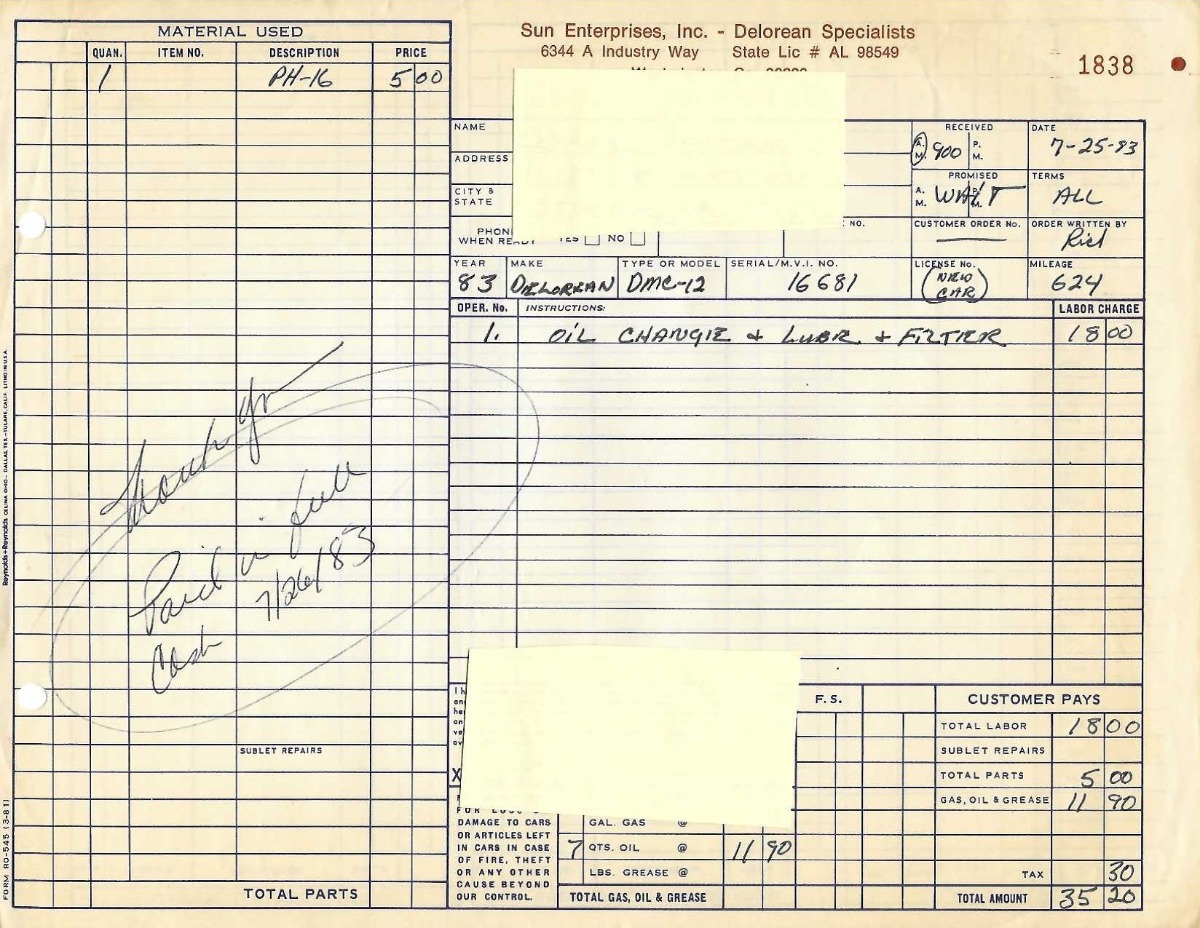 MATERIAL USED
QUAN. ITEM NO. DESCRIPTION PRICE
1 PH-16 5 00
Sun Enterprises, Inc. - Delorean Specialists
6344 A Industry Way State Lic # AL 98549
1838
NAME
ADDRESS
CITY &
STATE
WHEN READY YES NO
NO.
RECEIVED
A. M. 900 P. M.
DATE
7-25-83
PROMISED
A. M. WAIT P. M.
TERMS
ALL
CUSTOMER ORDER No.
ORDER WRITTEN BY
YEAR MAKE TYPE OR MODEL SERIAL/M.V.I. NO. LICENSE No. MILEAGE
83 DELOREAN DMC-12 16681 (NEW CAR) 624
OPER. No. INSTRUCTIONS: LABOR CHARGE
1. OIL CHANGE & LUBE & FILTER 18 00
Thank you
Paid in full
Cash 7/26/83
SUBLET REPAIRS
TOTAL PARTS
X
DAMAGE TO CARS
OR ARTICLES LEFT
IN CARS IN CASE
OF FIRE, THEFT
OR ANY OTHER
CAUSE BEYOND
OUR CONTROL.
GAL. GAS @
7 QTS. OIL @ 11 90
LBS. GREASE @
TOTAL GAS, OIL & GREASE
F.S.
CUSTOMER PAYS
TOTAL LABOR 18 00
SUBLET REPAIRS
TOTAL PARTS 5 00
GAS, OIL & GREASE 11 90
TAX 30
TOTAL AMOUNT 35 20
FORM RO-545 (3-81)
Reynolds+Reynolds